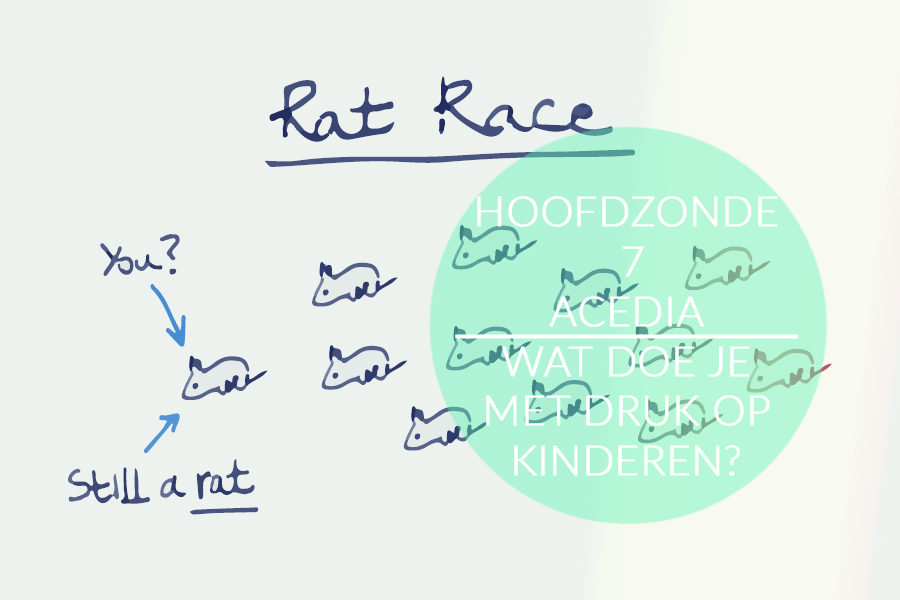 Rat Race
You?
Still a rat
HOOFDZONDE
7
ACEDIA
WAT DOE JE
MET DRUK OP
KINDEREN?